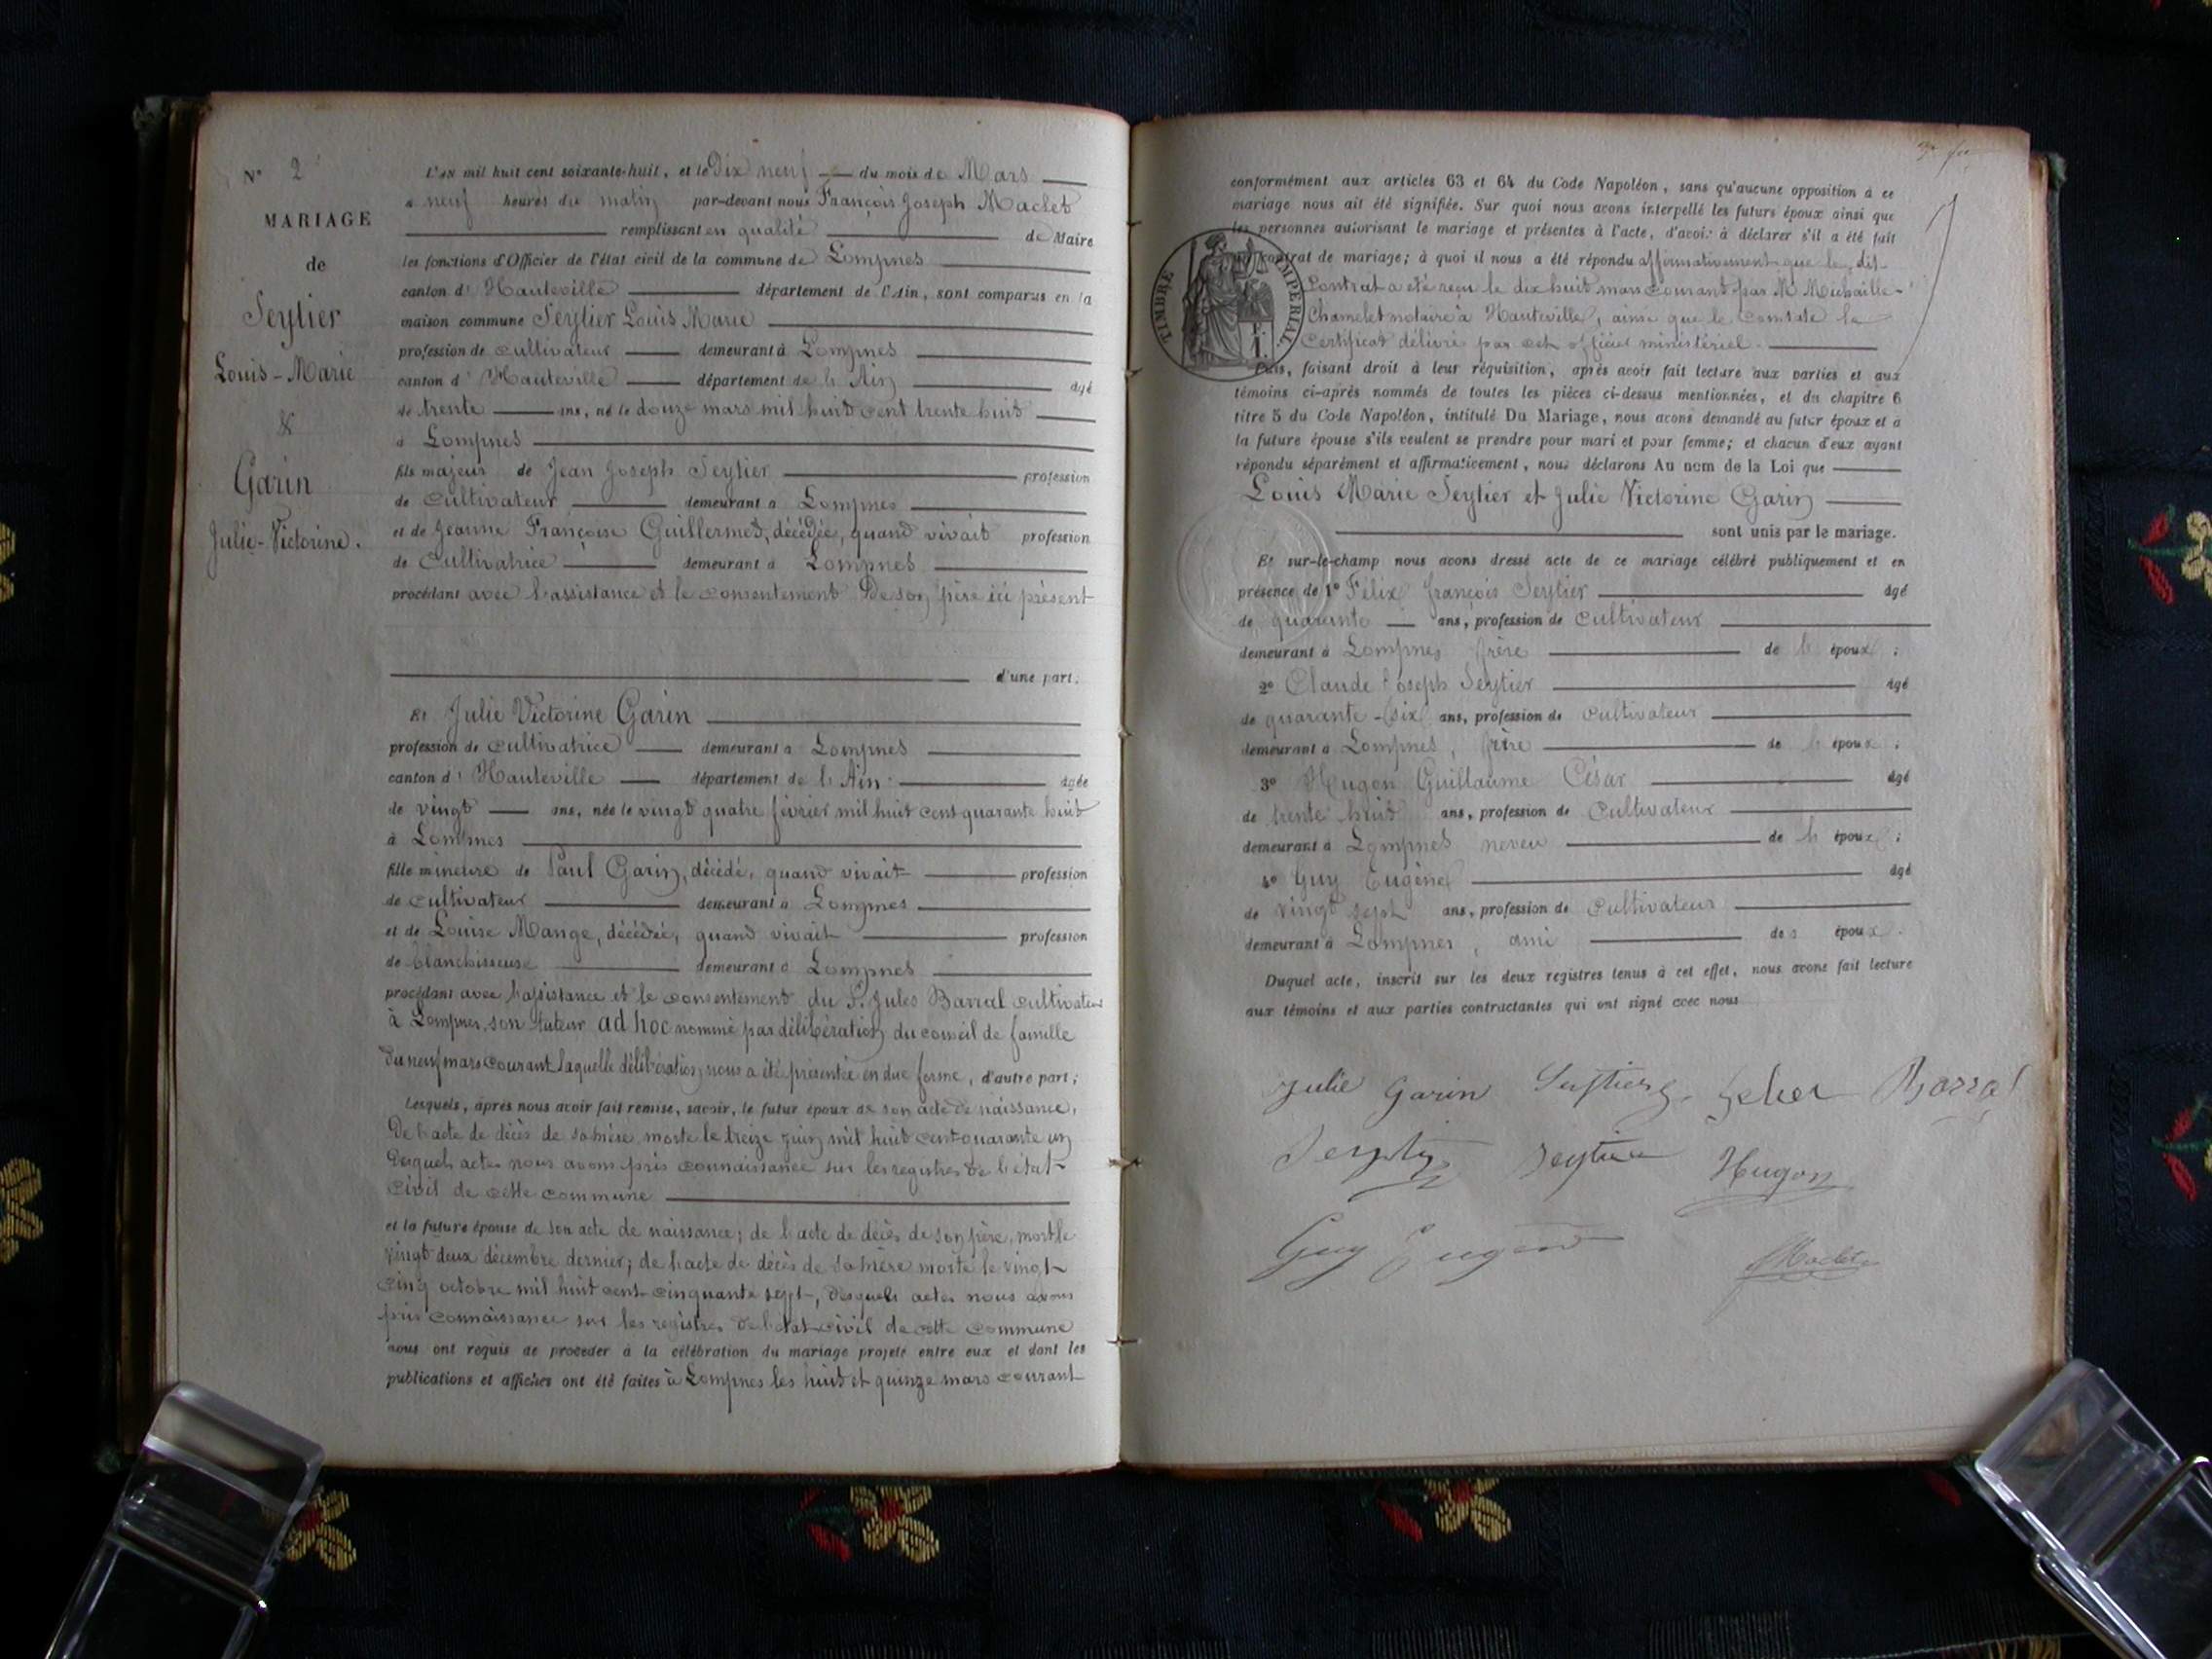 N° 2
MARIAGE
de
Seytier
Louis-Marie
&
Garin
Julie-Victorine.
L'an mil huit cent soixante-huit, et le Dix neuf du mois de Mars
à neuf heures du matin par-devant nous François Joseph Machet
remplissant en qualité de Maire
les fonctions d'Officier de l'état civil de la commune de Lompnes
canton d'Hauteville département de l'Ain, sont comparus en la
maison commune Seytier Louis Marie
profession de cultivateur demeurant à Lompnes
canton d'Hauteville département de l'Ain âgé
de trente ans, né le douze mars mil huit cent trente huit
à Lompnes
fils majeur de Jean Joseph Seytier profession
de cultivateur demeurant à Lompnes
et de Jeanne Françoise Guillermet, décédée, quand vivait profession
de Cultivatrice demeurant à Lompnes
procédant avec l'assistance et le consentement De son père ici présent
d'une part;
Et Julie Victorine Garin
profession de cultivatrice demeurant à Lompnes
canton d'Hauteville département de l'Ain âgée
de vingt ans, née le vingt quatre février mil huit cent quarante huit
à Lompnes
fille mineure de Paul Garin, décédé, quand vivait profession
de cultivateur demeurant à Lompnes
et de Louise Mange, décédée, quand vivait profession
de blanchisseuse demeurant à Lompnes
procédant avec l'assistance et le consentement du S. Jules Barral cultivateur
à Lompnes, son tuteur ad hoc nommé par délibération du conseil de famille
du neuf mars courant laquelle délibération nous a été présentée en due forme, d'autre part;
Lesquels, après nous avoir fait remise, savoir, le futur époux de son acte de naissance,
De l'acte de décès de sa mère morte le treize juin mil huit cent quarante un
Desquels actes nous avons pris connaissance sur les registres de l'état
civil de cette commune
et la future épouse de son acte de naissance; de l'acte de décès de son père, mort le
vingt deux décembre dernier; de l'acte de décès de sa mère morte le vingt
cinq octobre mil huit cent cinquante sept, desquels actes nous avons
pris connaissance sur les registres de l'état civil de cette commune
nous ont requis de procéder à la célébration du mariage projeté entre eux et dont les
publications et affiches ont été faites à Lompnes les huit et quinze mars courant
conformément aux articles 63 et 64 du Code Napoléon, sans qu'aucune opposition à ce
mariage nous ait été signifiée. Sur quoi nous avons interpellé les futurs époux ainsi que
les personnes autorisant le mariage et présentes à l'acte, d'avoir à déclarer s'il a été fait
contrat de mariage; à quoi il nous a été répondu affirmativement que le dit
Contrat a été reçu le dix huit mars courant par Me Michaille-
Chamelet notaire à Hauteville, ainsi que le constate le
Certificat délivré par cet officier ministériel.
TIMBRE IMPERIAL
Puis, faisant droit à leur réquisition, après avoir fait lecture aux parties et aux
témoins ci-après nommés de toutes les pièces ci-dessus mentionnées, et du chapitre 6
titre 5 du Code Napoléon, intitulé Du Mariage, nous avons demandé au futur époux et à
la future épouse s'ils veulent se prendre pour mari et pour femme; et chacun d'eux ayant
répondu séparément et affirmativement, nous déclarons Au nom de la Loi que
Louis Marie Seytier et Julie Victorine Garin
sont unis par le mariage.
Et sur-le-champ nous avons dressé acte de ce mariage célébré publiquement et en
présence de 1° Félix François Seytier âgé
de quarante ans, profession de Cultivateur
demeurant à Lompnes frère de l'époux;
2° Claude Joseph Seytier âgé
de quarante-six ans, profession de cultivateur
demeurant à Lompnes, frère de l'époux;
3° Hugon Guillaume César âgé
de trente huit ans, profession de Cultivateur
demeurant à Lompnes neveu de l'époux;
4° Guy Eugène âgé
de vingt sept ans, profession de Cultivateur
demeurant à Lompnes, ami des époux.
Duquel acte, inscrit sur les deux registres tenus à cet effet, nous avons fait lecture
aux témoins et aux parties contractantes qui ont signé avec nous
Julie Garin Seytier Barral
Seytier Seytier Hugon
Guy Eugène Machet